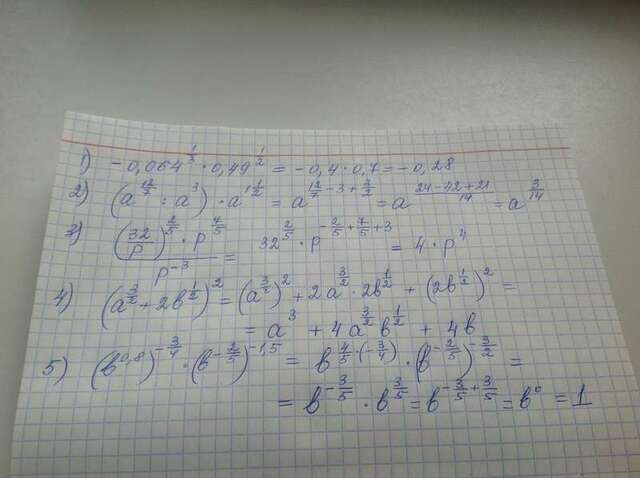 1) -0,064^{1/3} · 0,49^{1/2} = -0,4 · 0,7 = -0,28
2) (a^{12/7} : a^3) · a^{1 1/2} = a^{12/7 - 3 + 3/2} = a^{(24-42+21)/14} = a^{3/14}
3) ((32/p)^{2/5} · p^{7/5})/p^{-3} = 32^{2/5} · p^{-2/5 + 7/5 + 3} = 4 · p^4
4) (a^{3/2} + 2b^{1/2})^2 = (a^{3/2})^2 + 2a^{3/2} · 2b^{1/2} + (2b^{1/2})^2 =
= a^3 + 4a^{3/2}b^{1/2} + 4b
5) (b^{0,8})^{-3/4} · (b^{-2/5})^{-1,5} = b^{4/5 · (-3/4)} · (b^{-2/5})^{-3/2} =
= b^{-3/5} · b^{3/5} = b^{-3/5 + 3/5} = b^0 = 1